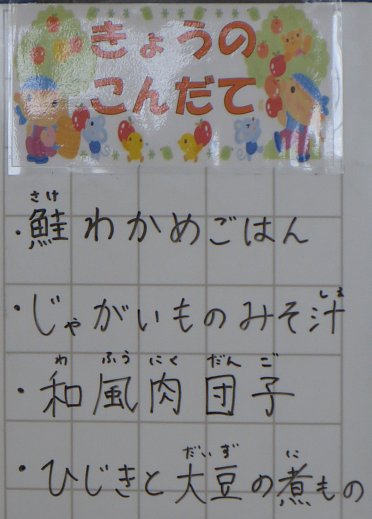 きょうの
こんだて
さけ
・鮭わかめごはん
しる
・じゃがいものみそ汁
わ ふう にく だん ご
・和風肉団子
だいず に
・ひじきと大豆の煮もの